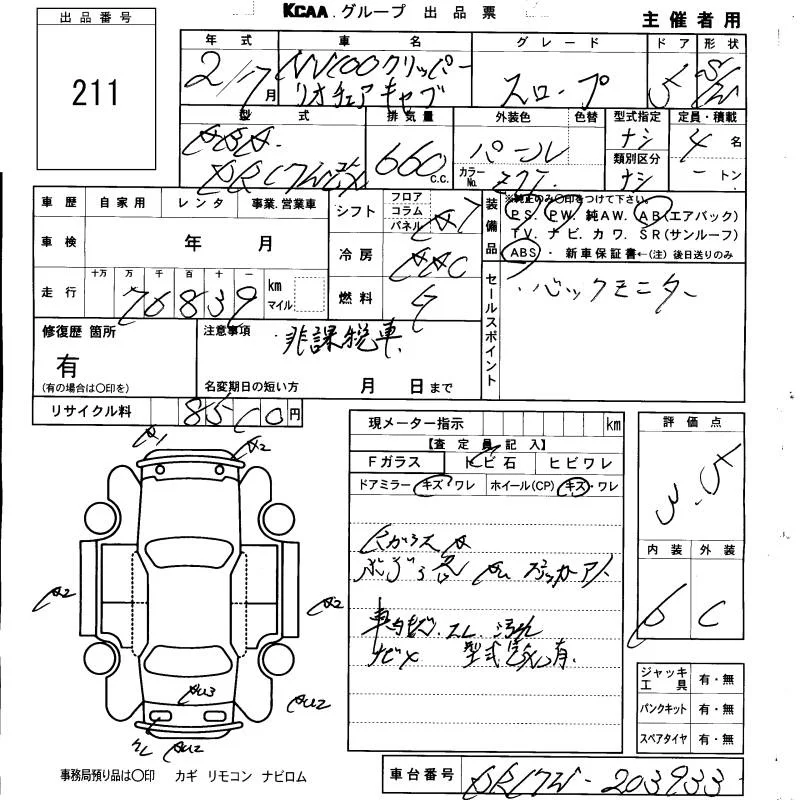 KCAA グループ 出品票
主催者用
出品番号
211
年式 車名 グレード ドア 形状
2/7月 NV100クリッパー
リオ チェアキャブ スロープ 5 S/W
型式 排気量 外装色 色替 型式指定 定員・積載
ABA- 660 c.c. パール ナシ 4名
DR17W改 カラーNo. 類別区分 ナシ ートン
車歴 自家用 レンタ 事業.営業車
シフト フロア コラム パネル AT
装備品 ※純正のみ〇印をつけて下さい。
PS. PW. 純AW. AB(エアバック)
TV. ナビ. カワ. SR(サンルーフ)
ABS・新車保証書←(注)後日送りのみ
車検 年 月
冷房 AAC
走行 十万 万 千 百 十 一
70839 km マイル
燃料 G
セールスポイント
・バックモニター
修復歴 箇所
有
(有の場合は〇印を)
注意事項
非課税車
名変期日の短い方 月 日まで
リサイクル料 8510円
現メーター指示 km
【査定員記入】
Fガラス トビ石 ヒビワレ
ドアミラー キズ・ワレ ホイール(CP) キズ・ワレ
RガラスA
車内キズ.スレ.汚れ
ナビ× 型式
有.
評価点
3.5
内装 外装
C
A1
A2
A2
A2
AU3
AU2
AU2
ジャッキ工具 有・無
パンクキット 有・無
スペアタイヤ 有・無
事務局預り品は〇印 カギ リモコン ナビロム
車台番号 DR17W-203933